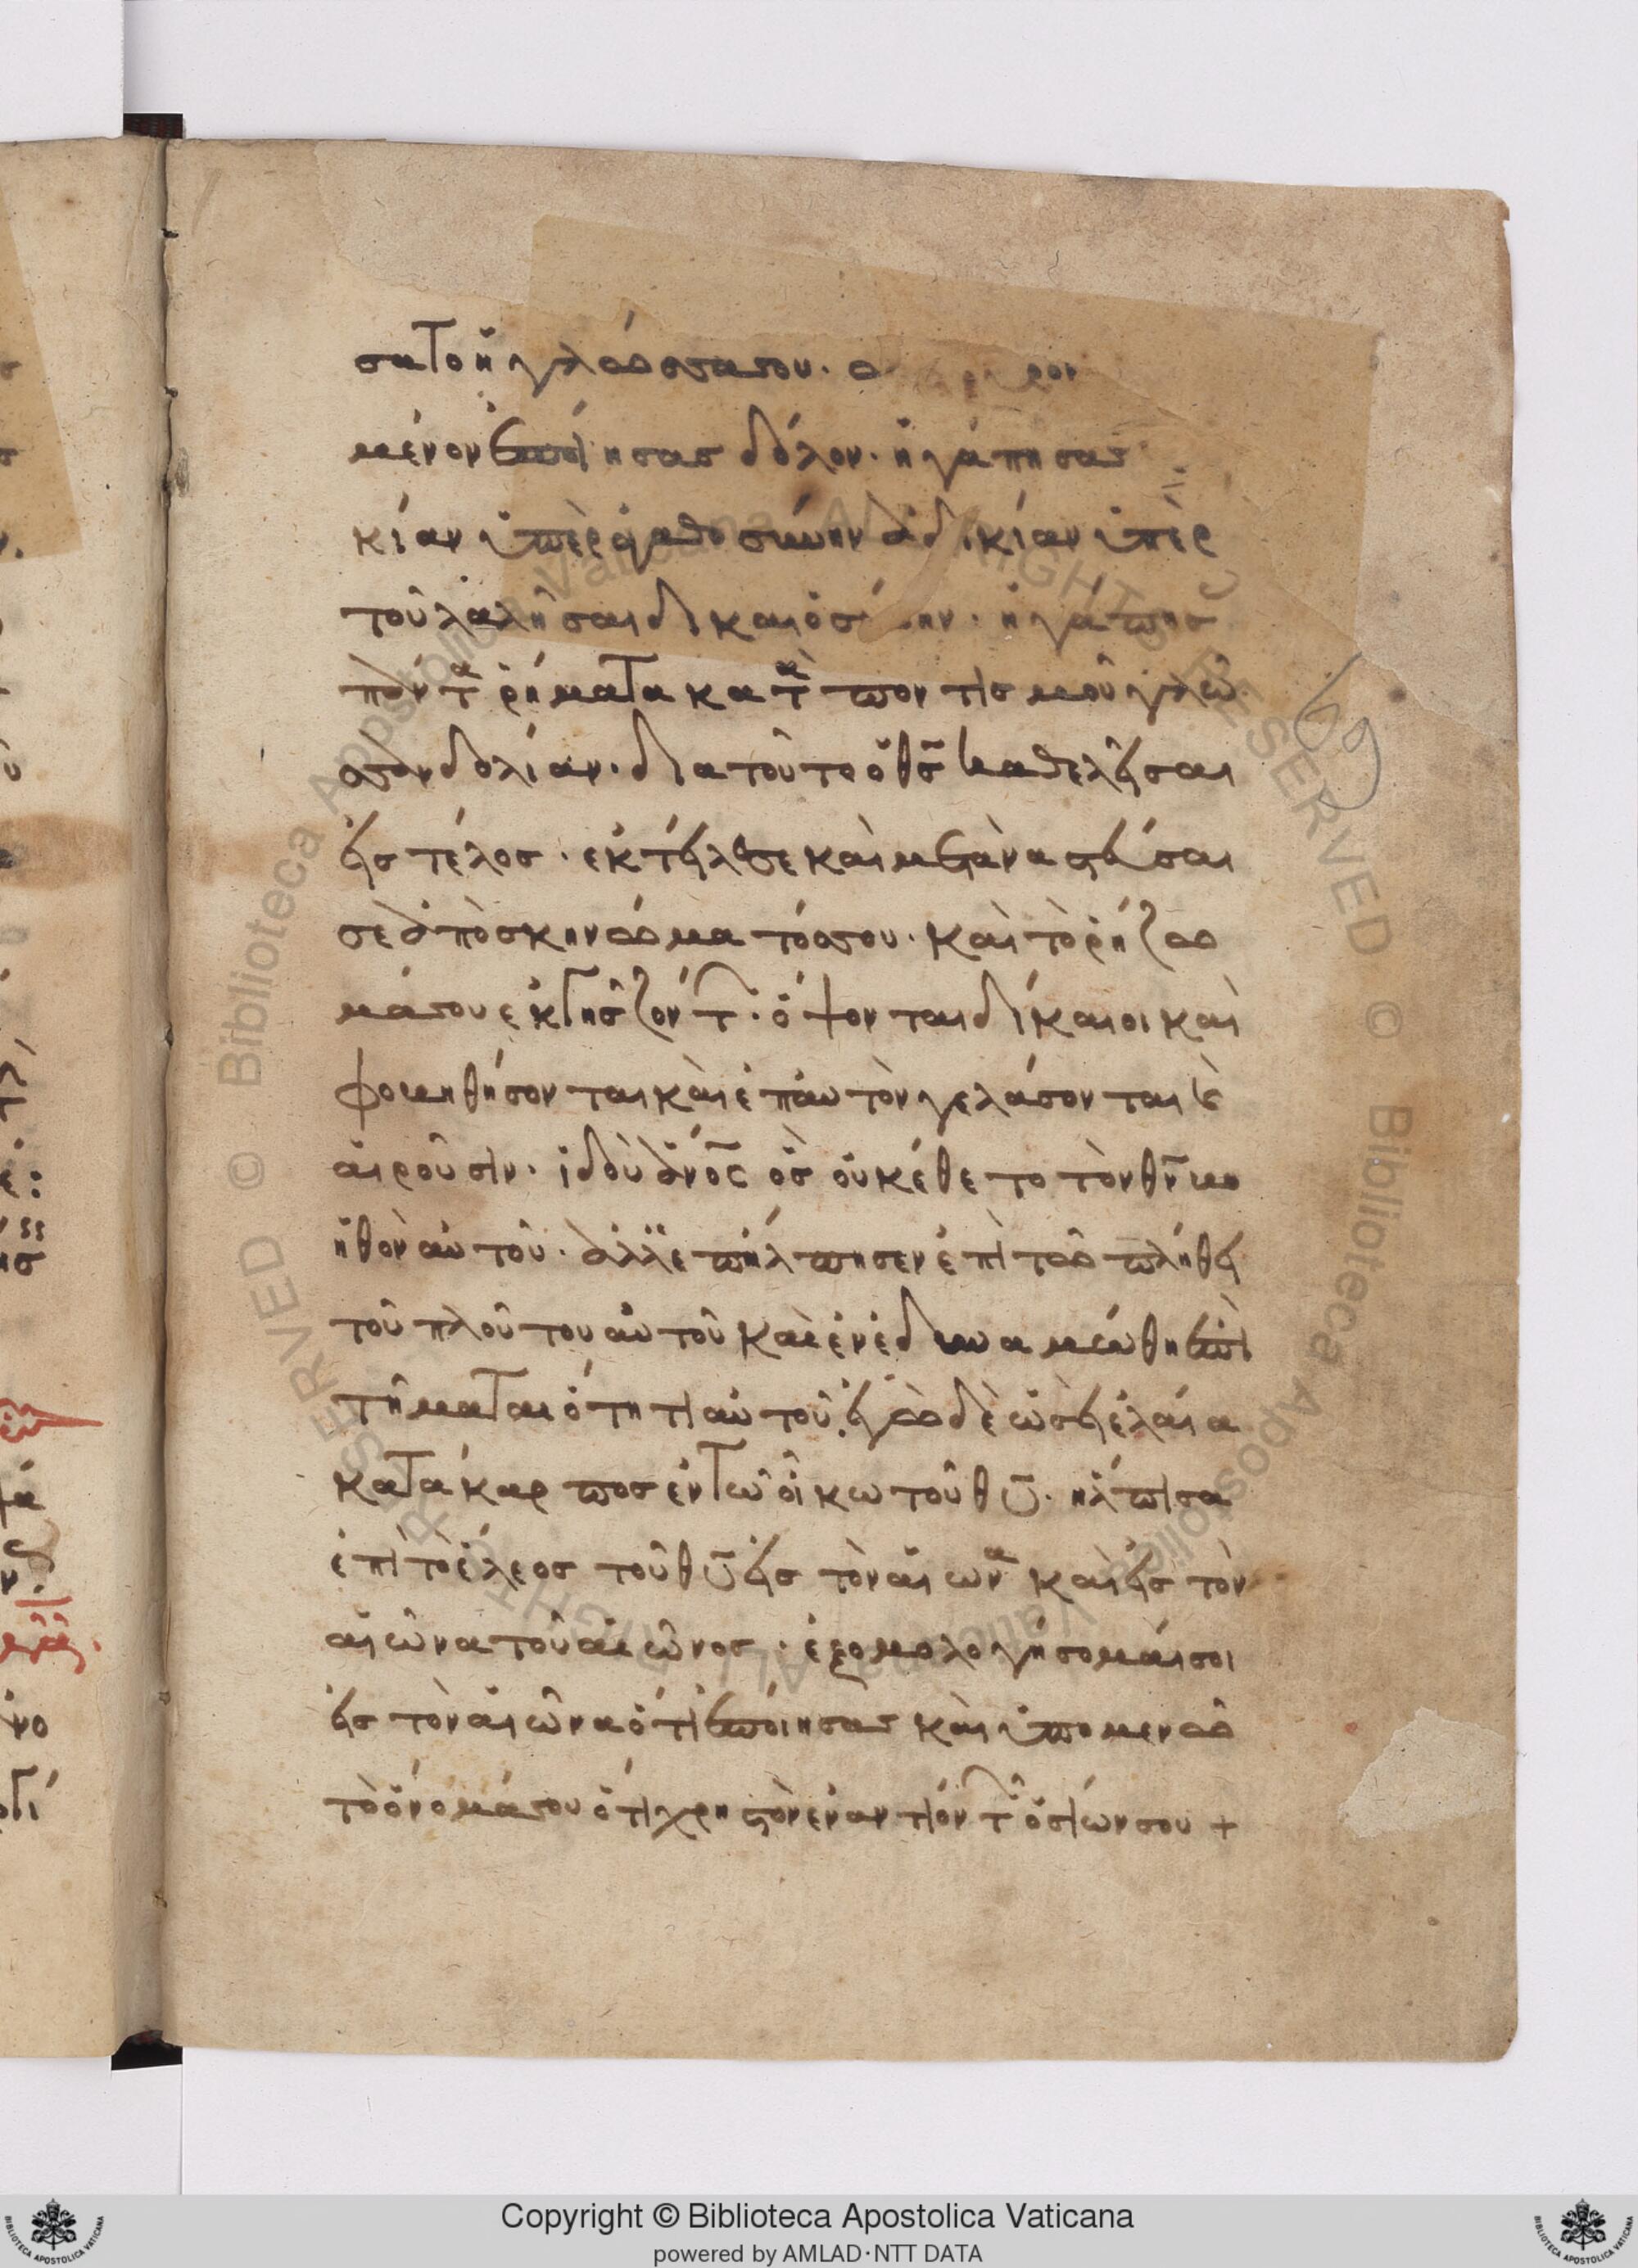 σατο ἡ γλῶσσα σου·
μένον ἐποίησας δόλον· ἠγάπησας
κίαν ὑπὲρ ἀγαθοσύνην ἀδικίαν ὑπὲρ
τοῦ λαλῆσαι δικαιοσύνην· ἠγάπησ
πάντα ρήματα καταποντισμοῦ γλῶ
σσαν δολίαν· διατοῦτο ὁ θς καθελεῖ σαι
εἰς τέλος· ἐκτείλαι σε καὶ μεταναστεύσαι
σὲ ἀπὸ σκηνώματός σου· καὶ τὸ ρήζω
μά σου ἐκ γῆς ζόντων· ὄψονται δίκαιοι καὶ
φοβηθήσονται καὶ ἐπαυτὸν γελάσονται καὶ
αἰροῦσιν· ἰδοὺ ἀνος ὃς οὐκ ἔθετο τὸν θν βο
ηθὸν αὐτοῦ· ἀλλ' ἐπήλπησεν ἐπὶ τῶ πλήθει
τοῦ πλούτου αὐτοῦ καὶ ἐνεδυναμώθη ἐπὶ
τῆ ματαιότητι αὐτοῦ· ἐγὼ δὲ ὡσεὶ ἐλαία
κατάκαρπος ἐν τῶ οἴκω τοῦ θυ· ἤλπισα
ἐπὶ τὸ ἔλεος τοῦ θυ εἰς τὸν αἰῶνα καὶ εἰς τὸν
αἰῶνα τοῦ αἰῶνος· ἐξομολογήσομαί σοι
εἰς τὸν αἰῶνα ὅτι ἐποίησας καὶ ὑπομενῶ
τὸ ὄνομά σου ὅτι χρηστὸν ἐναντίον τῶν ὁσίων σου +
69
Copyright © Biblioteca Apostolica Vaticana
powered by AMLAD·NTT DATA